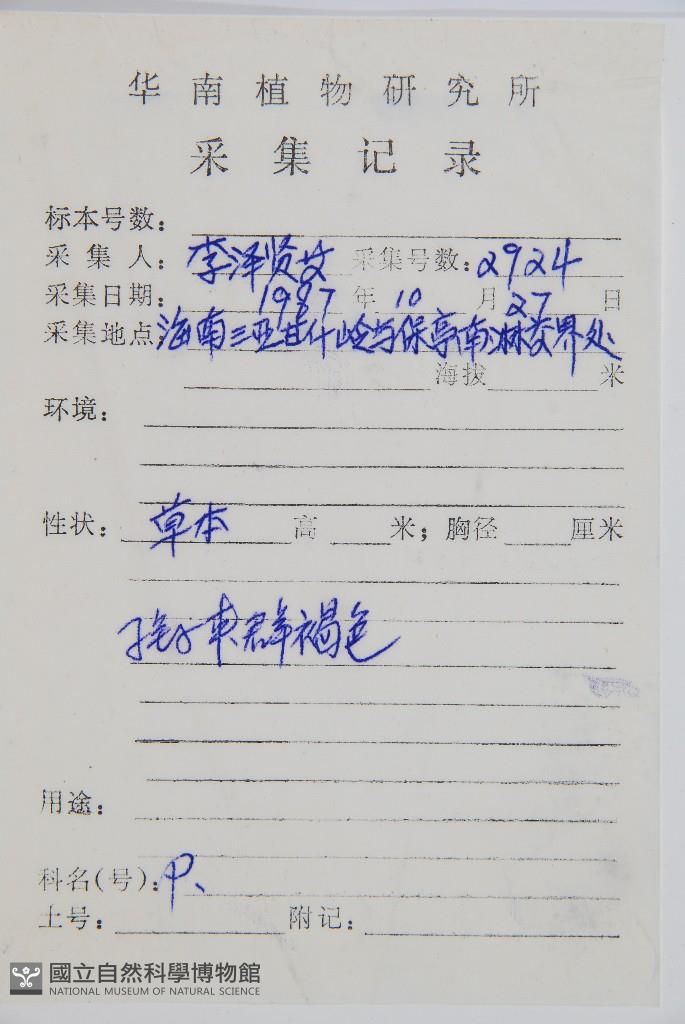 华南植物研究所
采集记录
标本号数：
采集人：李泽贤 采集号数：2924
采集日期：1987年10月27日
采集地点：海南三亚甘什岭与保亭南淋交界处
海拔 米
环境：
性状：草本 高 米；胸径 厘米
孢子束群褐色
用途：
科名(号)：P、
土号： 附记：
國立自然科學博物館
NATIONAL MUSEUM OF NATURAL SCIENCE